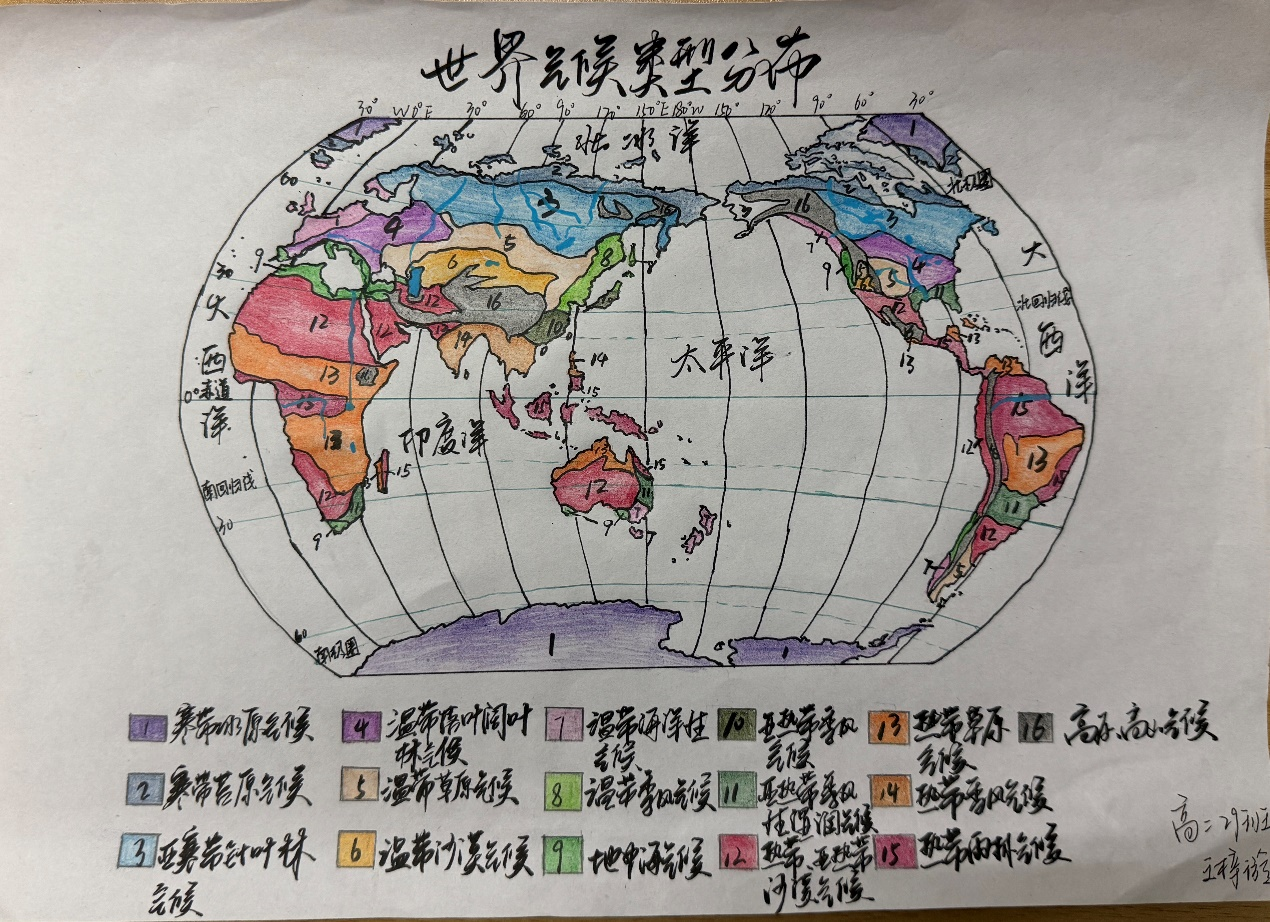 世界气候类型分布
30° W0°E 30° 60° 90° 120° 150°E 180°W 150° 120° 90° 60° 30°
北冰洋
1
1
北极圈
60
2
2
3
16
3
4
5
8
8
7
4
大
9
30
6
9
5
大
12
12
16
12
11
北回归线
12
12
10
16
15
13
西
西
14
14
13
太平洋
13
16
13
洋
0°赤道
15
15
15
15
洋
印度洋
13
12
13
15
15
南回归线
12
12
11
11
30
9
9
7
12
7
5
60
南极圈
1
1
1 寒带冰原气候
2 寒带苔原气候
3 亚寒带针叶林
气候
4 温带落叶阔叶
林气候
5 温带草原气候
6 温带沙漠气候
7 温带海洋性
气候
8 温带季风气候
9 地中海气候
10 亚热带季风
气候
11 亚热带季风
性湿润气候
12 热带、亚热带
沙漠气候
13 热带草原
气候
14 热带季风气候
15 热带雨林气候
16 高原、高山气候
高二29班
王梓